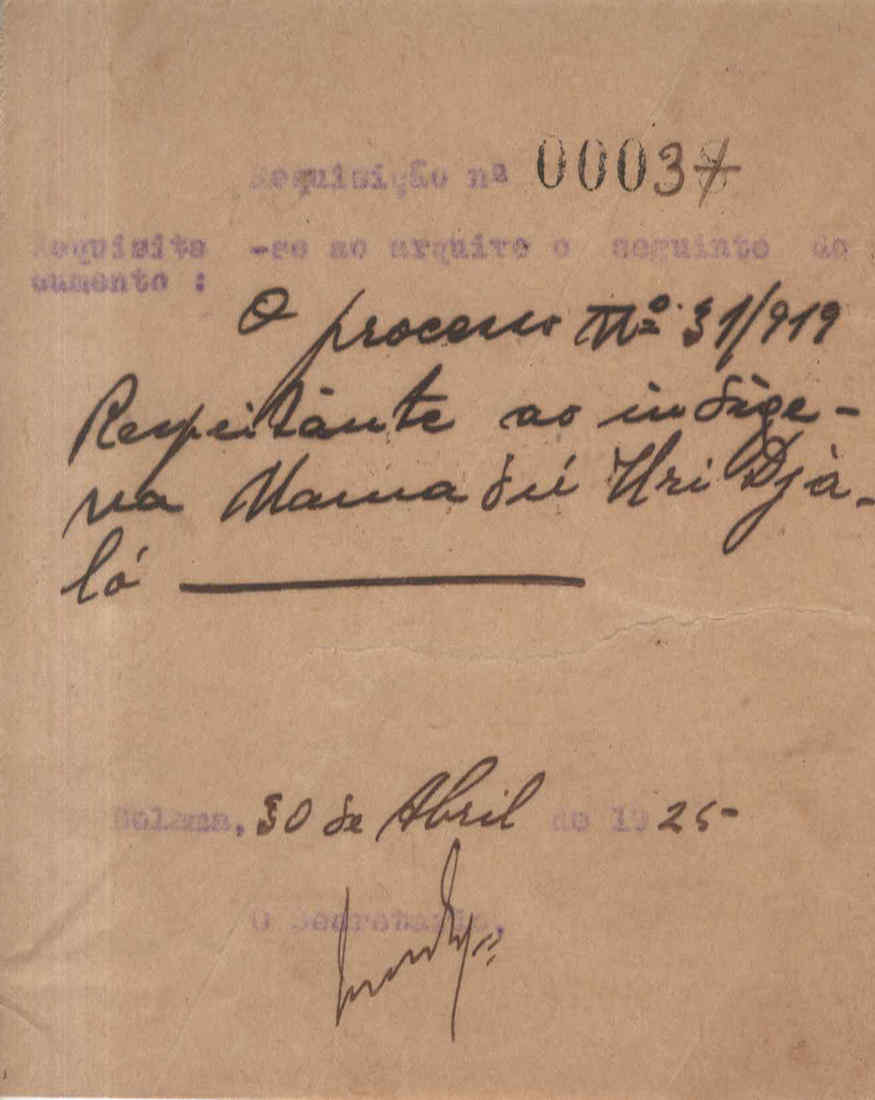 Requisição nº 00037
Requisita -se ao arquivo o seguinte do
cumento :
O processo Nº 31/919
Respeitante ao indige-
na Mamadú Uri Djà-
ló
Bolama, 30 de Abril de 1925-
O Secretario,